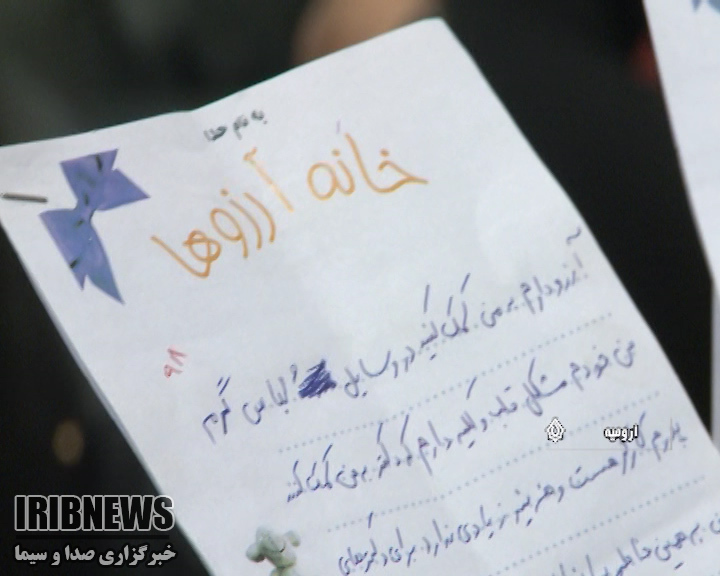 به نام خدا
خانه آرزوها
۹۸
آرزو دارم به من کمک کنید در وسایل لباس گرم
من خودم مشکل قلب و کلیه دارم که دکتر به من کمک کند
پدرم کارگر هست و هزینه زیادی ندارد برای دکترهای
به همین خاطر
ارومیه
IRIBNEWS
خبرگزاری صدا و سیما